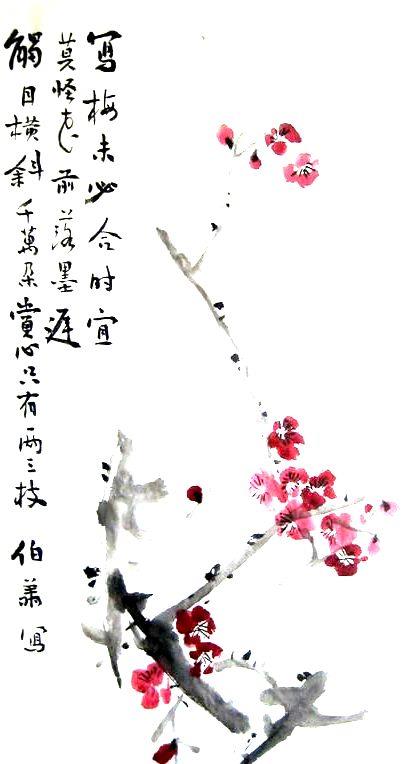 寫梅未必合时宜
莫怪花前落墨遲
觸目横斜千萬朵賞心只有兩三枝 伯 寫